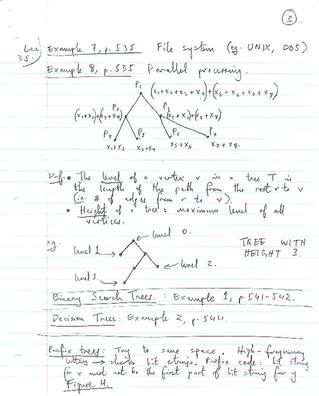 3.
Lec 35.
Example 7, p. 535 File system (eg. UNIX, DOS)
Example 8, p. 535 Parallel processing.
P1 (x1+x2+x3+x4)+(x5+x6+x7+x8)
(x1+x2)+(x3+x4) P2 P3 (x5+x6)+(x7+x8)
P4 P5 P6 P7
x1+x2 x3+x4 x5+x6 x7+x8
Def: • The level of a vertex v in a tree T is
the length of the path from the root r to v
(ie. # of edges from r to v)
• Height of a tree: maximum level of all
vertices.
eg. level 0.
level 1 TREE WITH
level 2. HEIGHT 3.
level 3.
Binary Search Trees: Example 1, p. 541-542.
Decision Trees: Example 2, p. 544.
Prefix trees: Try to save space. High-frequency
letters → shorter bit strings. Prefix code: bit string
for x must not be the first part of bit string for y
Figure 4.